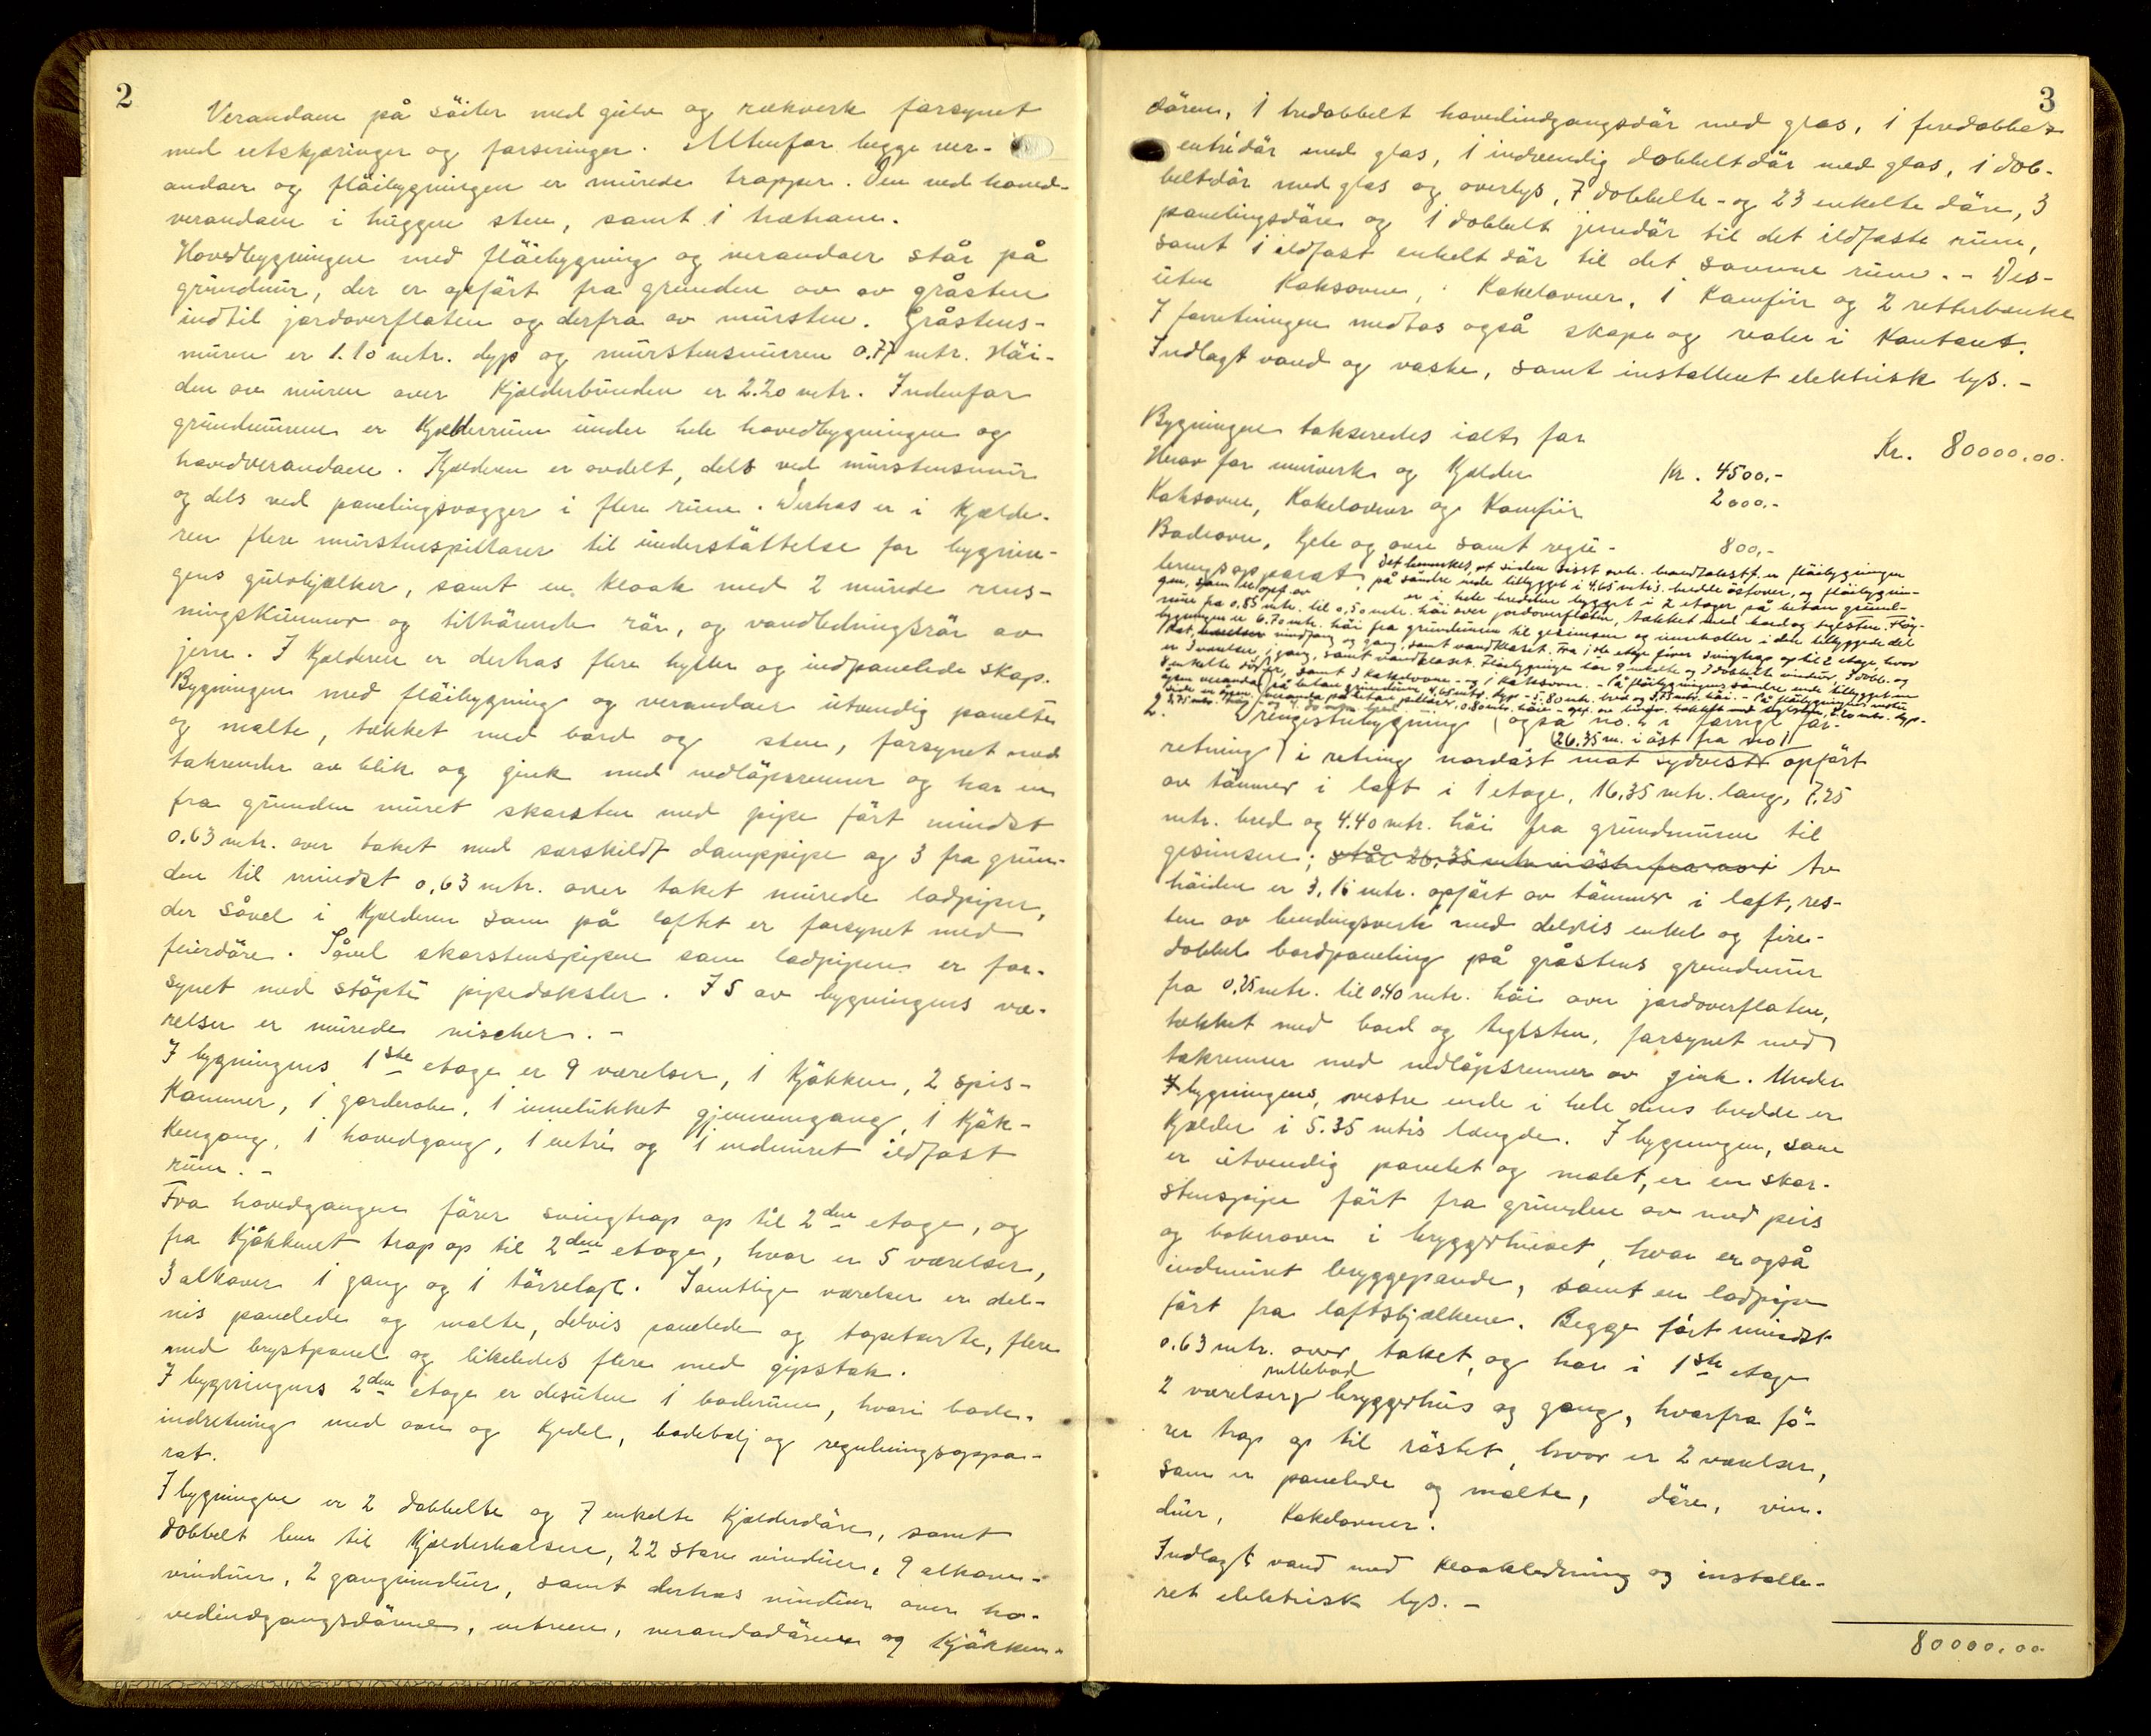 2
Verandaen på söiler med gulv og rækverk forsynet
med utskjæringer og forseringer. Utenfor begge ver-
andaer og flöibygningen er murede trapper. Den ved hoved-
verandaen i huggen sten, samt 1 trætrapp.
Hovedbygningen med flöibygning og verandaer står på
grundmur, der er opfört fra grunden av av gråsten
indtil jordoverflaten og derfra av mursten. Gråstens-
muren er 1.10 mtr. dyp og murstensmuren 0.77 mtr. Höi-
den av muren over Kjælderbunden er 2.20 mtr. Indenfor
grundmuren er Kjælderrum under hele hovedbygningen og
hovedverandaen. Kjælderen er avdelt, dels ved murstensmur
og dels ved panelingsvægger i flere rum. Derhos er i Kjælde-
ren flere murstenspillarer til understöttelse for bygnin-
gens gulvbjælker, samt en kloak med 2 murede rens-
ningskummer og tilhörende rör, og vandledningsrör av
jern. I Kjælderen er derhos flere hyller og indpanelede skap.
Bygningen med flöibygning og verandaer utvendig panelte
og malte, tækket med bord og sten, forsynet med
takrender av blik og zink med nedlöpsrenner og har en
fra grunden muret skorsten med pipe fört mindst
0.63 mtr. over taket med særskildt damppipe og 3 fra grun-
den til mindst 0,63 mtr. over taket murede lodpiper,
der såvel i Kjælderen som på loftet er forsynet med
feierdöre. Såvel skorstenspipen som lodpipene er for-
synet med stöpte pipedæksler. I 5 av bygningens væ-
relser er murede nischer. -
I bygningens 1ste etage er 9 værelser, 1 Kjökken, 2 spis-
Kammer, 1 garderobe, 1 innelukket gjennemgang, 1 Kjök-
Kengang, 1 hovedgang, 1 entré og 1 indmuret ildfast
rum. -
Fra hovedgangen förer svingtrap op til 2den etage, og
fra Kjökkenet trap op til 2den etage, hvor er 5 værelser,
3 alkover 1 gang og 1 törreloft. Samtlige værelser er del-
vis panelede og malte, delvis panelede og tapetserte, flere
med brystpanel og likeledes flere med gipstak.
I bygningens 2den etage er desuten 1 baderum, hvori bade-
indretning med ovn og Kjedel, badebalj og reguleringsappa-
rat.
I bygningen er 2 dobbelte og 7 enkelte Kjælderdöre, samt
dobbelt lem til Kjælderhalsen, 22 store vinduer, 9 alkove-
vinduer, 2 gangvinduer, samt derhos vinduer over ho-
vedindgangsdörene, entreen, verandadörene og Kjökken-
3
dören, 1 tredobbelt hovedindgangsdör med glas, 1 firedobbel
entrédör med glas, 1 indvendig dobbeltdör med glas, 1 dob-
beltdör med glas og overlys, 7 dobbelte- og 23 enkelte döre, 3
panelingsdöre og 1 dobbelt jerndör til det ildfaste rum,
samt 1 ildfast enkelt dör til det samme rum. - Des-
uten Koksovne, Kakelovner, 1 Komfür og 2 retterbænke
I forretningen medtas også skape og realer i Kontoret.
Indlagt vand og vaske, samt installeret elektrisk lys. -
Bygningen takseredes ialt for Kr. 80000.00.
Herav for murverk og Kjelder Kr. 4500,-
Koksovne, Kakelovner og Komfür 2000,-
Badeovn, Kjele og ovn samt regu- 800,-
leringsapparat. Det bemerkes, at siden sisst avh. brandtakstf. er flöibygningen
på söndre ende tilbygget i 4.65 mtrs. bredde östover, og flöibygnin-
gen, som er opf. av er i hele bredden bygget i 2 etager på beton grund-
mur fra 0,85 mtr. til 0,50 mtr. höi over jordoverflaten, tækket med bord og teglsten. Flöi-
bygningen er 6.70 mtr. höi fra grundmuren til gesimsen og inneholder i den tilbyggede del
vindfang og gang, samt vandkloset. Fra 1ste etage förer svingtrap op til 2 etage, hvor
er 3 værelser, 1 gang, samt vandkloset. Flöibygningen har 9 enkelte og 3 dobbelte vinduer, 3 dobb. og
8 enkelte dörer, samt 3 kakelovne- og 1 koksovn. - På flöibygningens söndre ende tilbygget en
åpen veranda på beton grundmur, 4,65 mtr. dyp - 5.80 mtr. bred og 3,75 mtr. höi. - På flöibygningens vestre
side er åpen veranda på beton pillarer, 0.80 mtr. höi - opf. av tömmer tækket med teglsten, 2.20 mtr. dyp -
2. Drengestubygning (også no. 2 i forrige for-
26.35 m. i öst fra no 1
retning) i retning nordöst mot sydvest opfört
av tömmer i laft i 1 etage, 16,35 mtr. lang, 7.25
mtr. bred og 4.40 mtr. höi fra grundmuren til
gesimsen; står 26.35 mtr. i östen fra no 1 Av
höiden er 3,15 mtr. opfört av tömmer i laft, res-
ten av bendingsverk med delvis enkel og fire-
dobbel bordpaneling på gråstens grundmur
fra 0,25 mtr. til 0.40 mtr. höi over jordoverflaten,
tækket med bord og teglsten, forsynet med
takrenner med nedlöpsrenner av zink. Under
bygningens vestre ende i hele dens bredde er
Kjelder i 5.35 mtrs længde. I bygningen, som
er utvendig panelet og malet, er en skor-
stenspipe fört fra grunden av med peis
og bakerovn i bryggerhuset, hvor er også
indmuret bryggepande, samt en lodpipe
fört fra loftsbjælkene. Begge fört mindst
0.63 mtr. over taket, og har i 1ste etage
rullebod
2 værelser, bryggerhus og gang, hvorfra fö-
rer trap op til röstet, hvor er 2 værelser,
som er panelede og malte, döre, vin-
duer, Kakelovner.
Indlagt vand med kloakledning og installe-
ret elektrisk lys. -
80000.00